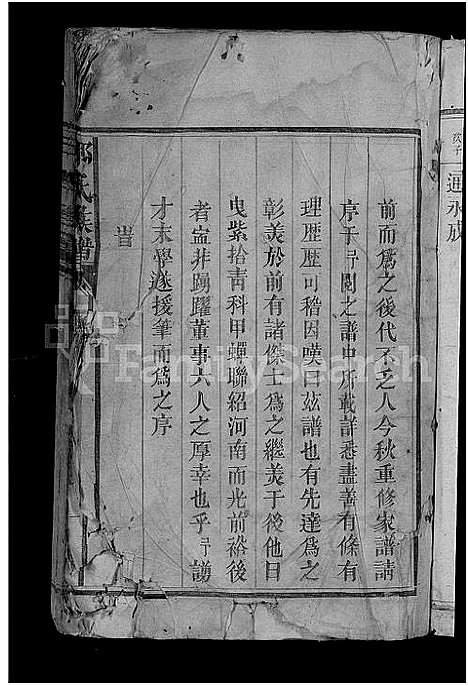 前而爲之後代不乏人今秋重修家譜請
序于予閱之譜中所載詳悉盡善有條有
理歷歷可稽因嘆曰茲譜也有先達爲之
彰美於前有諸傑士爲之繼美于後他日
曳紫拾靑科甲蟬聯紹河南而光前裕後
者寍非踴躍董事六人之厚幸也乎予謭
才末學遂援筆而爲之序
旹
氏族譜
通永成
FamilySearch